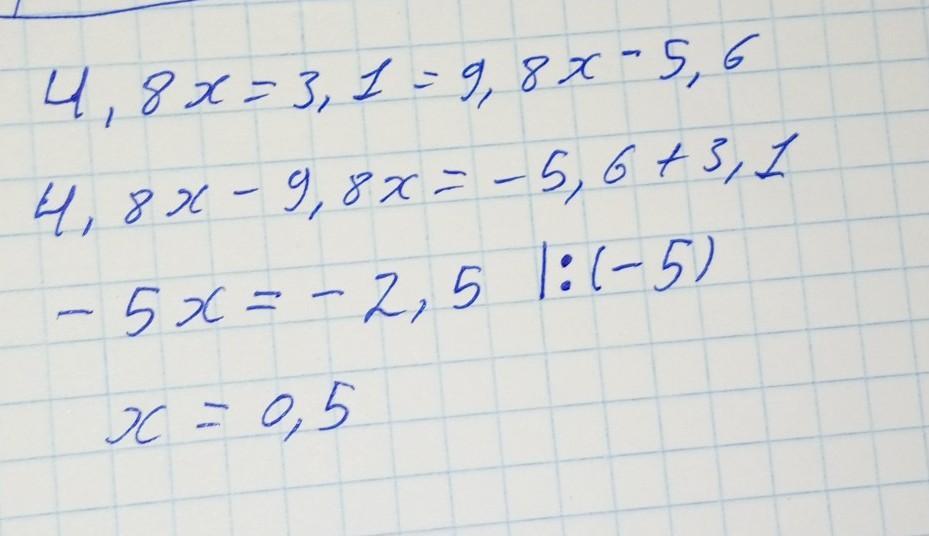 4,8x=3,1=9,8x-5,6
4,8x-9,8x=-5,6+3,1
-5x=-2,5 |:(-5)
x=0,5